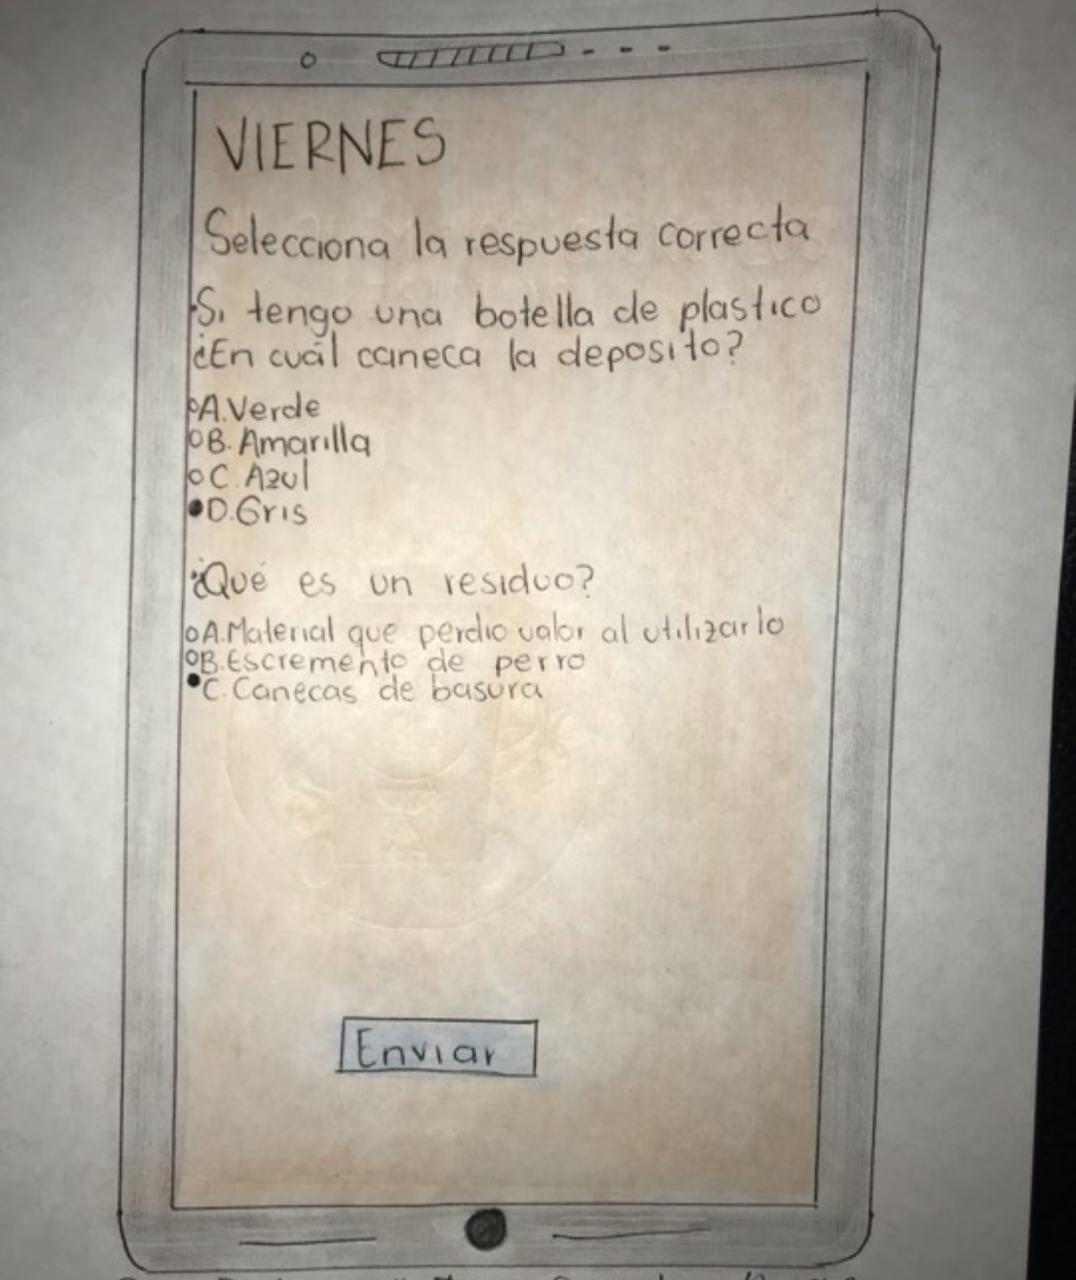 VIERNES
Selecciona la respuesta correcta
·Si tengo una botella de plastico
¿En cuál caneca la deposito?
A.Verde
B. Amarilla
C. Azul
D.Gris
¿Qué es un residuo?
A.Material que perdio valor al utilizarlo
B.Escremento de perro
C.Canecas de basura
Enviar